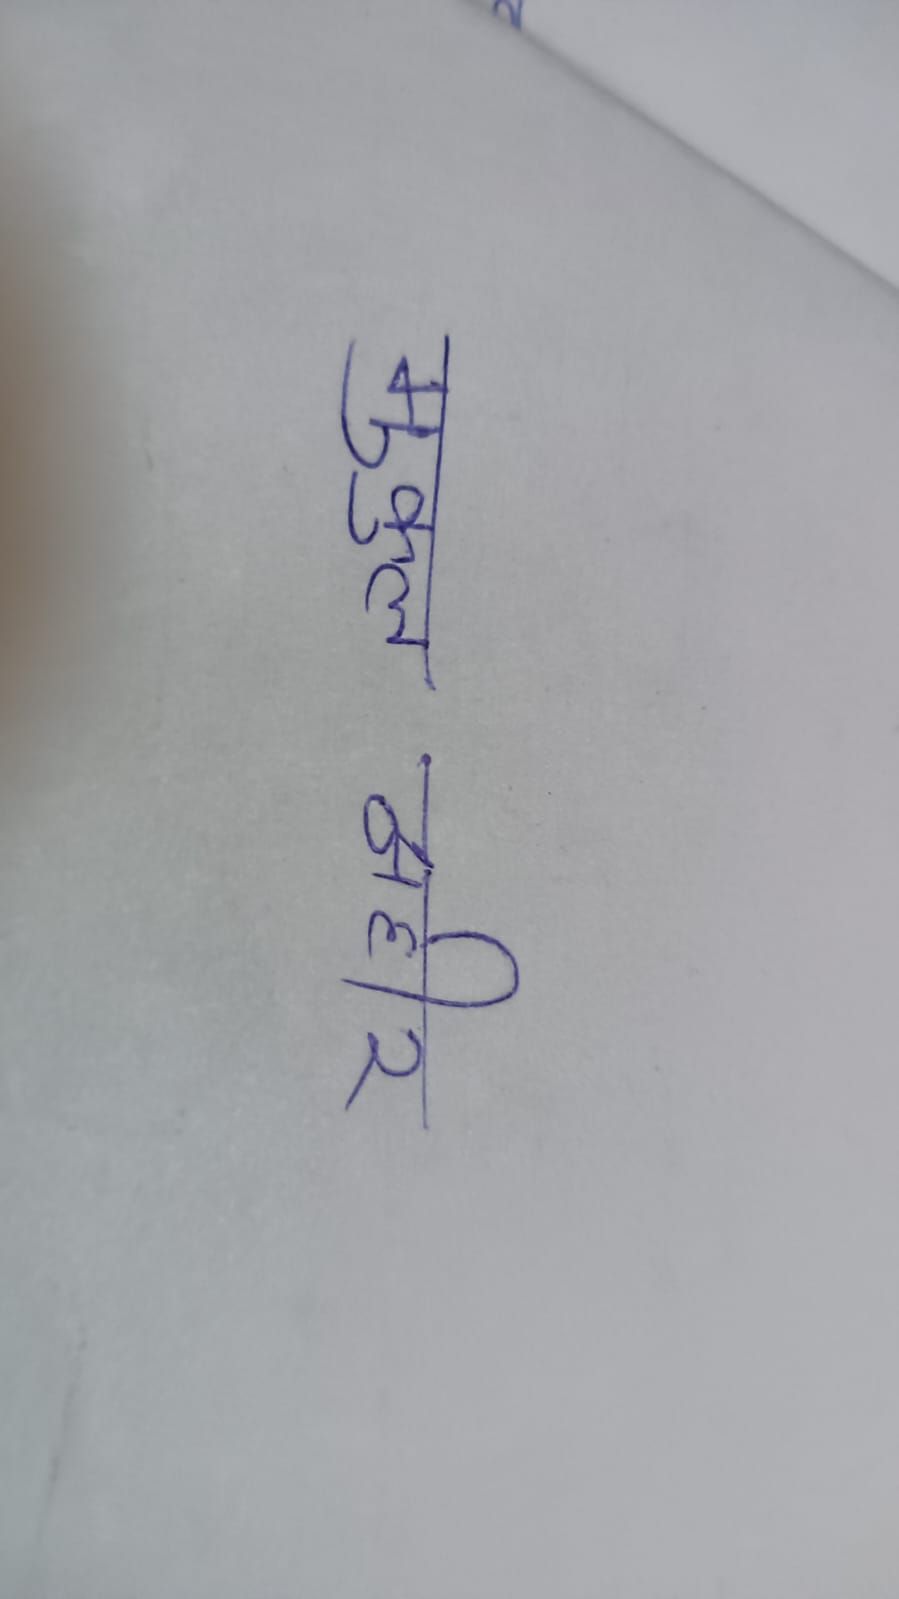 मुकुल अहीर